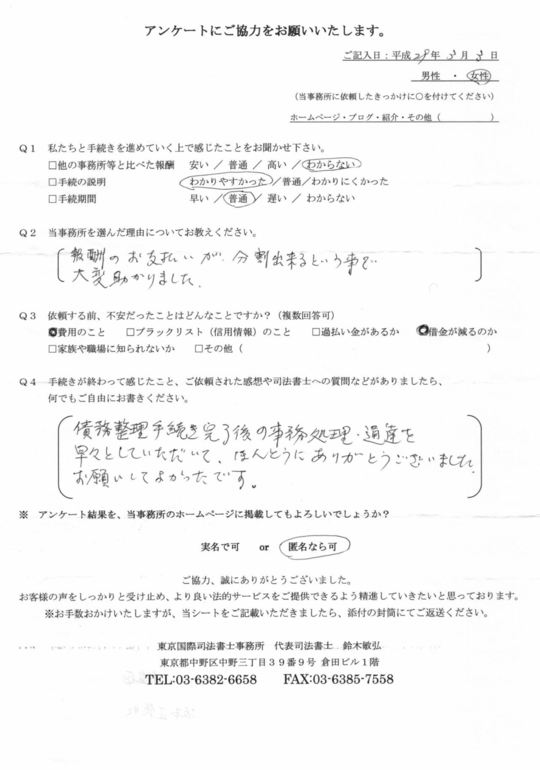 アンケートにご協力をお願いいたします。
ご記入日：平成29年3月3日
男性 ・ 女性
（当事務所に依頼したきっかけに○を付けてください）
ホームページ・ブログ・紹介・その他（　　　　　）
Q１ 私たちと手続きを進めていく上で感じたことをお聞かせ下さい。
□他の事務所等と比べた報酬　安い ／ 普通 ／ 高い ／ わからない
□手続の説明　わかりやすかった ／ 普通 ／ わかりにくかった
□手続期間　早い ／ 普通 ／ 遅い ／ わからない
Q２ 当事務所を選んだ理由についてお教えください。
報酬のお支払いが、分割出来るという事で
大変助かりました。
Q３ 依頼する前、不安だったことはどんなことですか？（複数回答可）
費用のこと　□ブラックリスト（信用情報）のこと　□過払い金があるか　借金が減るのか
□家族や職場に知られないか　□その他（　　　　　）
Q４ 手続きが終わって感じたこと、ご依頼された感想や司法書士への質問などがありましたら、
何でもご自由にお書きください。
債務整理手続き完了後の事務処理・通達を
早々としていただいて、ほんとうにありがとうございました。
お願いしてよかったです。
※ アンケート結果を、当事務所のホームページに掲載してもよろしいでしょうか？
実名で可　or　匿名なら可
ご協力、誠にありがとうございました。
お客様の声をしっかりと受け止め、より良い法的サービスをご提供できるよう精進していきたいと思っております。
※お手数おかけいたしますが、当シートをご記載いただきましたら、添付の封筒にてご返送ください。
東京国際司法書士事務所　代表司法書士　鈴木敏弘
東京都中野区中野三丁目３９番９号 倉田ビル１階
TEL:03-6382-6658　FAX:03-6385-7558